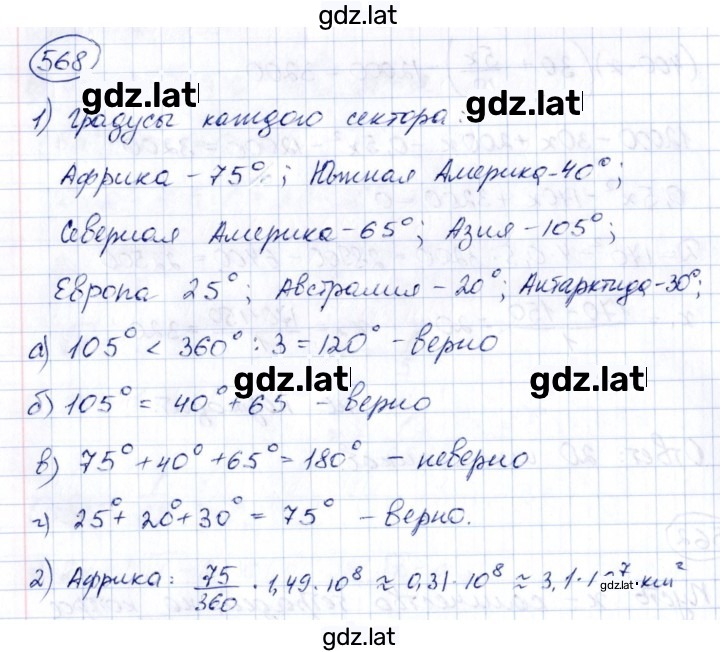 gdz.lat
568
1) Градусы каждого сектора:
gdz.lat gdz.lat
Африка - 75°; Южная Америка - 40°;
Северная Америка - 65°; Азия - 105°;
Европа 25°; Австралия - 20°; Антарктида - 30°;
а) 105° < 360° : 3 = 120° - верно
gdz.lat gdz.lat
б) 105° = 40° + 65 - верно
в) 75° + 40° + 65° = 180° - неверно
г) 25° + 20° + 30° = 75° - верно.
2) Африка: 75/360 · 1,49 · 10⁸ ≈ 0,31 · 10⁸ ≈ 3,1 · 10⁷ км²
gdz.lat
gdz.lat